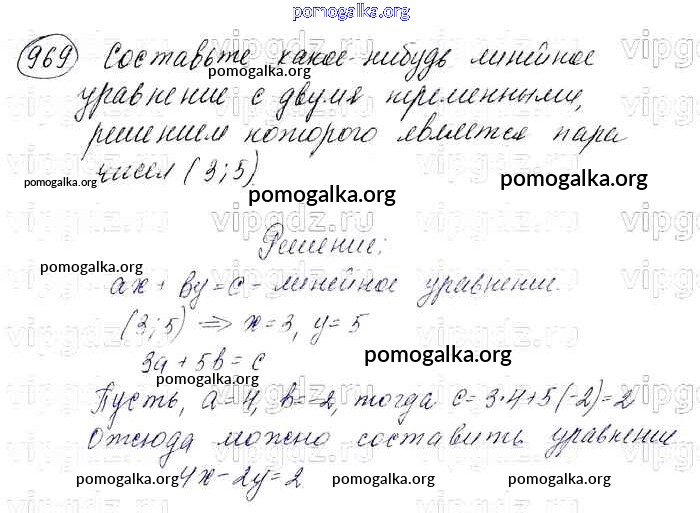 pomogalka.org
969 Составьте какое-нибудь линейное
pomogalka.org
pomogalka.org
уравнение с двумя переменными,
решением которого является пара
чисел (3;5)
pomogalka.org
pomogalka.org
pomogalka.org
vipgdz.ru
Решение:
pomogalka.org
ax + by = c - линейное уравнение
(3;5) => x=3, y=5
3a + 5b = c
pomogalka.org
pomogalka.org
Пусть, a=4, b=-2, тогда c=3·4+5(-2)=2
Отсюда можно составить уравнение
4x-2y=2
pomogalka.org
pomogalka.org
pomogalka.org